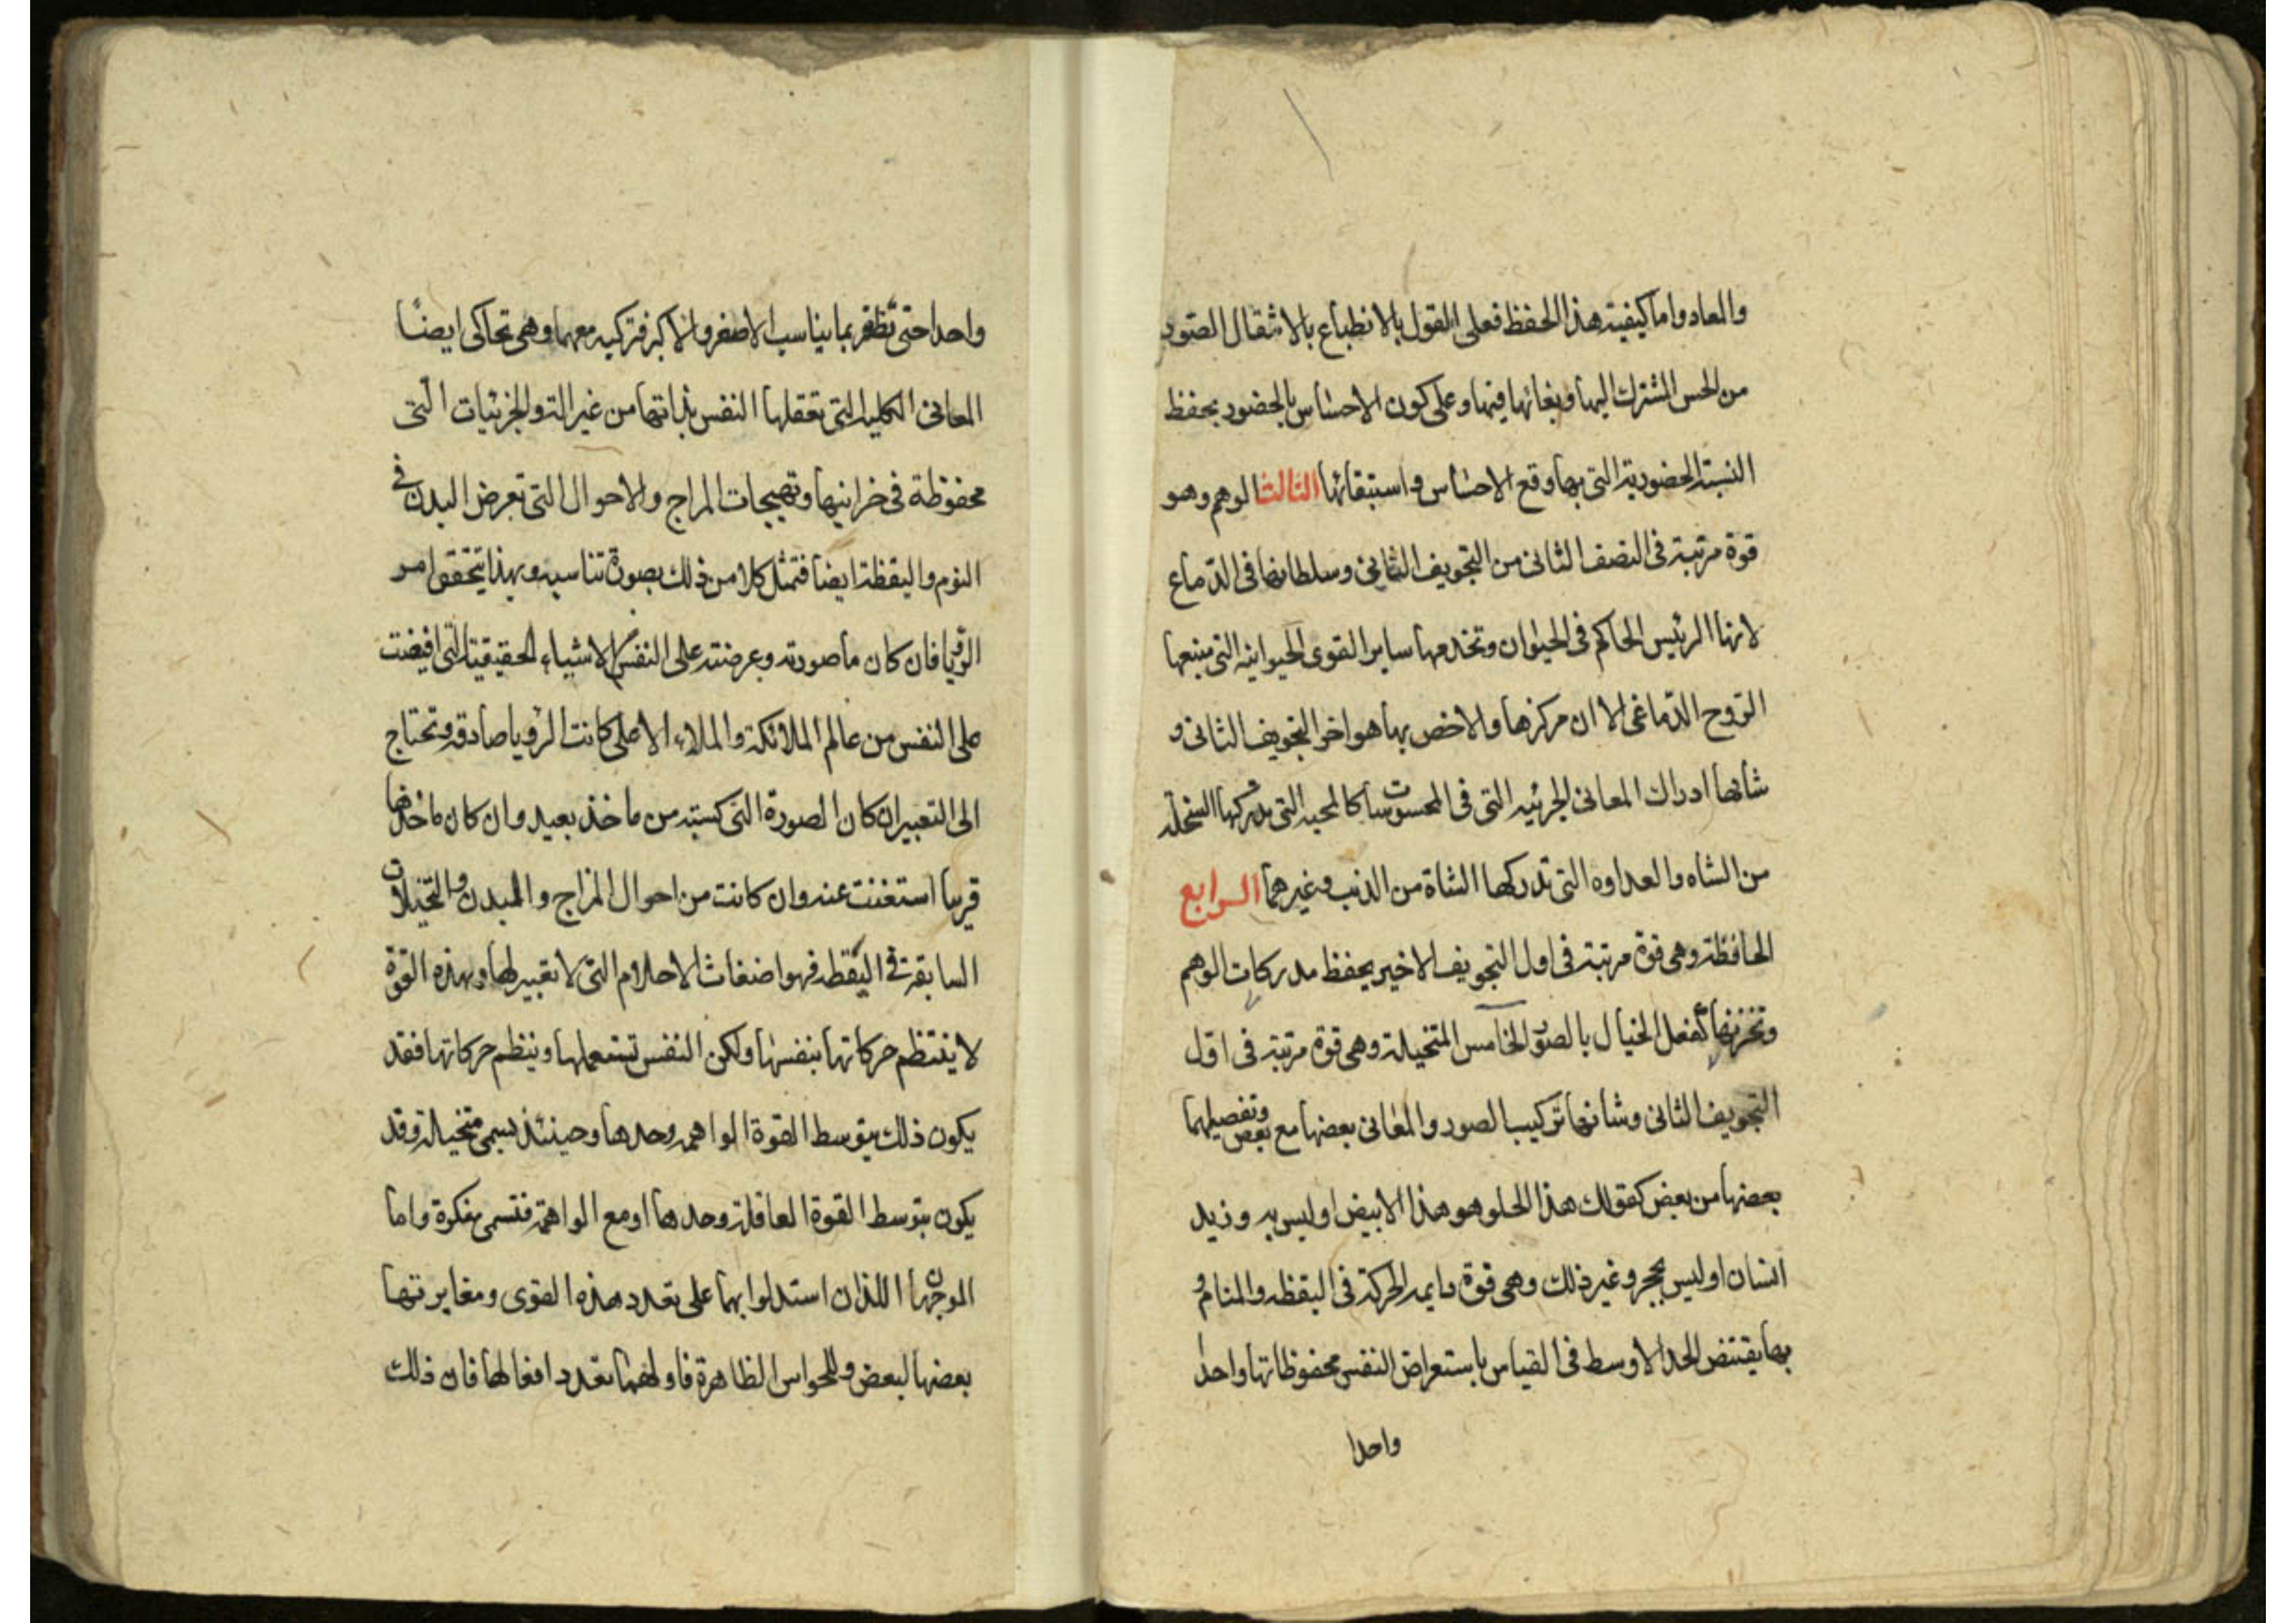 والعاد واما كيفية هذا الحفظ فعلى القول بالانطباع بالانتقال الصور
من الحس المشترك اليها وبقائها فيها وعلى كون الاحساس بالحضور بحفظ
النسبة الحضورية التي بها وقع الاحساس واستبقائها الثالث الوهم وهو
قوة مرتبة في النصف الثاني من التجويف الثاني وسلطانها في الدماغ
لانها الرئيس الحاكم في الحيوان وتخدمها ساير القوى الحيوانية التي منبعها
الروح الدماغي الا ان مركزها والاخص بها هو اخر التجويف الثاني و
شانها ادراك المعاني الجزئيه التي في المحسوسات كالمحبه التي تدركها السخلة
من الشاه والعداوه التي تدركها الشاة من الذئب وغيرهما الرابع
الحافظة وهي قوة مرتبة في اول التجويف الاخير يحفظ مدركات الوهم
وتخزنها كفعل الخيال بالصور الخامس المتخيلة وهي قوة مرتبة في اول
التجويف الثاني وشانها تركيب الصور والمعاني بعضها مع بعض وتفصيلهما
بعضها من بعض كقولك هذا الحلو هو هذا الابيض او ليس به وزيد
انسان او ليس بحجر وغير ذلك وهي قوة دايمه الحركة في اليقظه والمنام و
بها يقتنص الحد الاوسط في القياس باستعراض النفس محفوظاتها واحدا
واحدا
واحدا حتى تظفر بما يناسب الاصغر والاكبر فتركبه معهما وهي تحاكى ايضًا
المعاني الكلية التي تعقلها النفس بذاتها من غير الة والجزئيات التي
محفوظة في خزاينها وتهيجات المزاج والاحوال التي تعرض البدن في
النوم واليقظة ايضا فتمثل كلا من ذلك بصورة تناسبه وبهذا يتحقق امر
الرؤيا فان كان ما صورته وعرضته على النفس من الاشياء الحقيقية التي افيضت
على النفس من عالم الملائكة والملاء الاعلى كانت الرؤيا صادقه وتحتاج
الى التعبير ان كان الصورة التي كسته من ماخذ بعيد وان كان ماخذها
قريبا استغنت عنه وان كانت من احوال المزاج والبدن والتخيلات
السابقة في اليقظه فهو اضغاث الاحلام التي لا تعبير لها وبهذه القوة
لا ينتظم حركاتها بنفسها ولكن النفس تستعملها وينظم حركاتها فقد
يكون ذلك بتوسط القوة الواهمه وحدها وحينئذ يسمى متخيلة وقد
يكون بتوسط القوة العاقلة وحدها او مع الواهمة فتسمى مفكرة واما
الوجهان اللذان استدلوا بهما على تعدد هذه القوى ومغايرتها
بعضها لبعض وللحواس الظاهرة فاولهما تعدد افعالها فان ذلك